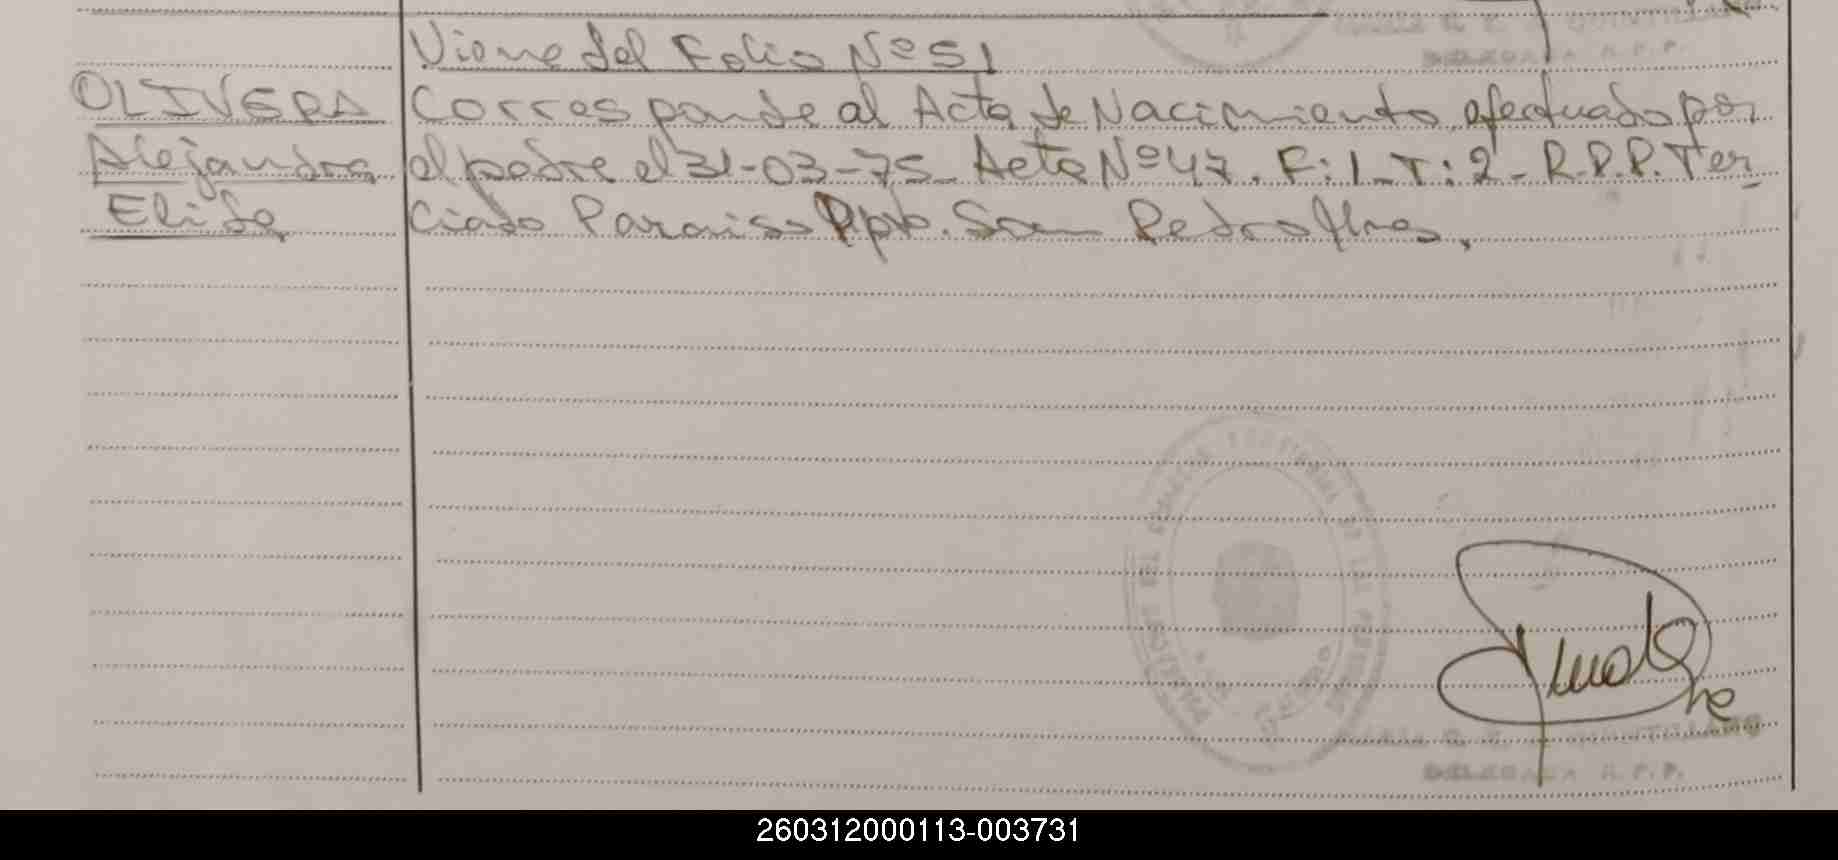 Viene del Folio Nº 51
OLIVERA Corresponde al Acta de Nacimiento, efectuado por
Alejandra el padre el 31-03-75. Acta Nº 47. F: 1_ T: 2_ R.P.P. Ter
Elisa ciado Paraiso Dpto. San Pedro Mnes.
QUINTILLANO
DELEGADA R.P.P.
260312000113-003731